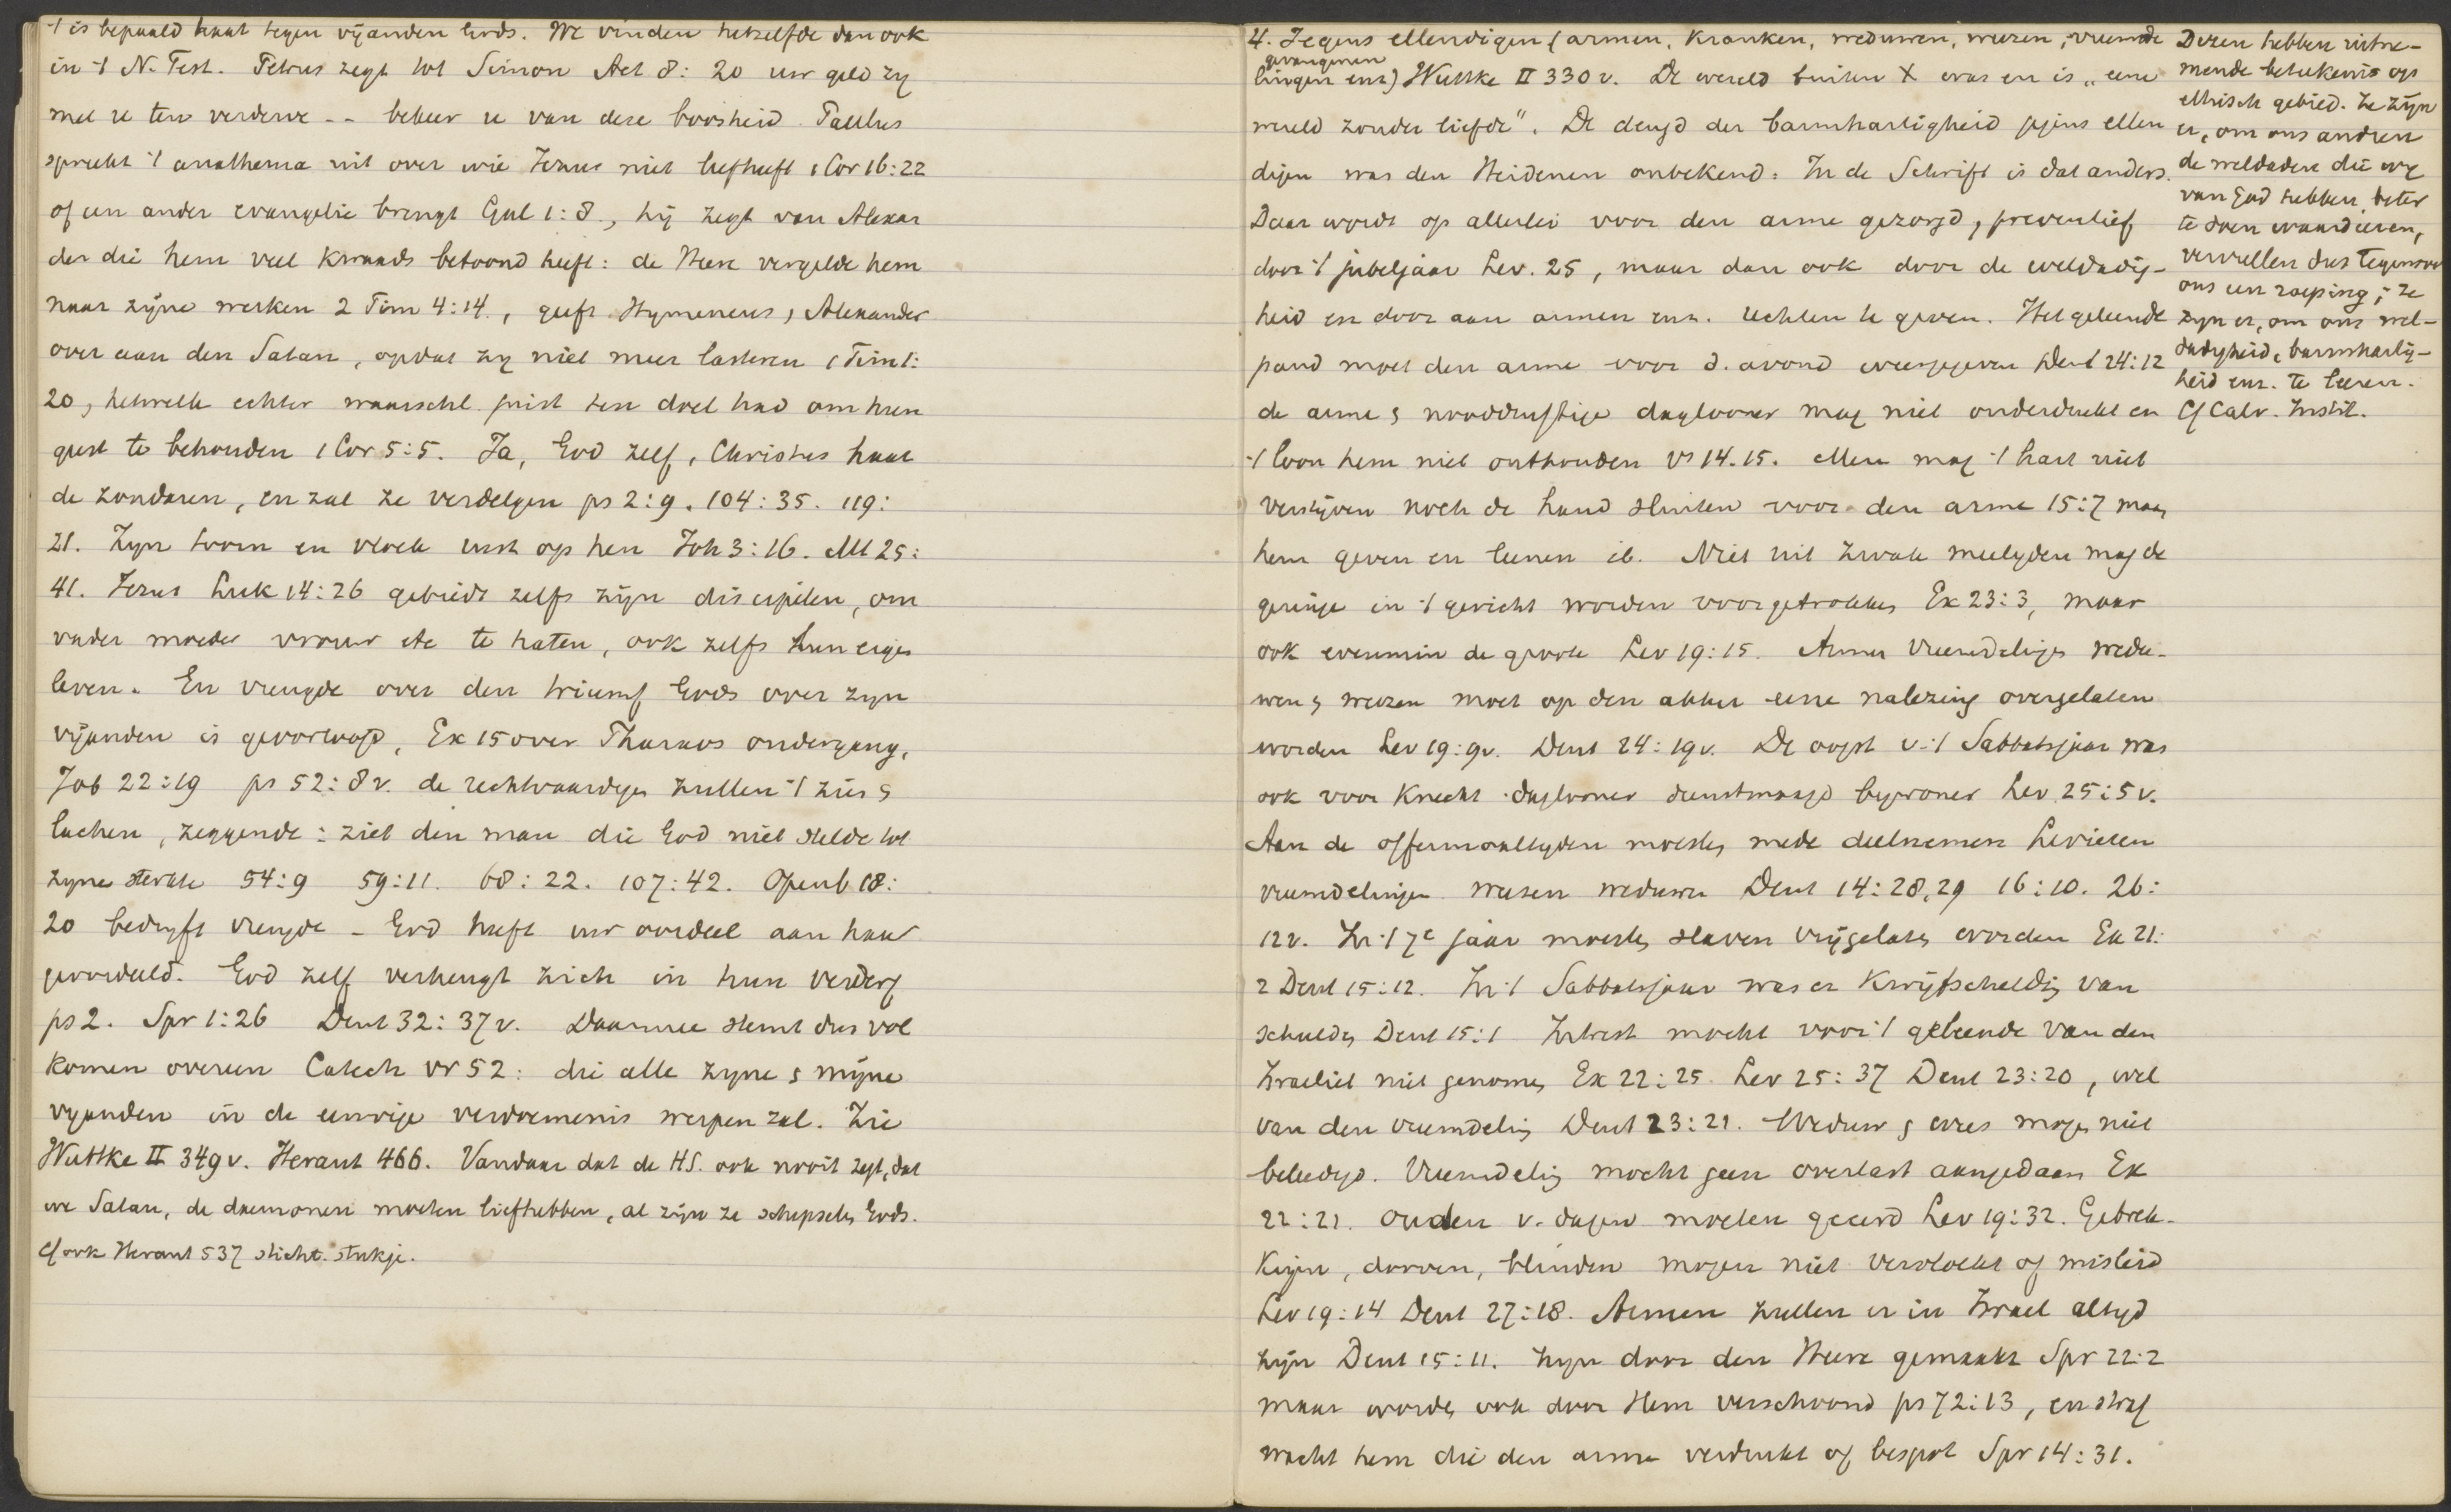 't is bepaald haat tegen vijanden Gods. We vinden hetzelfde dan ook
in 't N. Test. Petrus zegt tot Simon Act 8: 20 uw geld zij
met u ten verderve -- bekeer u van deze boosheid. Paulus
spreekt 't anathema uit over wie Jezus niet liefheeft 1 Cor 16:22
of een ander evangelie brengt Gal 1:8., hij zegt van Alexan
der die hem veel kwaads betoond heeft: de Heere vergelde hem
naar zijne werken 2 Tim 4:14., geeft Hymeneus, Alexander
over aan den Satan, opdat zij niet meer lasteren 1 Tim 1:
20, hetwelk echter waarschl. juist ten doel had om hun
geest te behouden 1 Cor 5:5. Ja, God zelf, Christus haat
de zondaren, en zal ze verdelgen ps 2:9. 104:35. 119:
21. Zijn toorn en vloek rust op hen Joh 3:16. Mt 25:
41. Jezus Luk 14:26 gebiedt zelfs zijn discipelen, om
vader moeder vrouw etc te haten, ook zelfs hun eigen
leven. En vreugde over den triumf Gods over zijn
vijanden is geoorloofd, Ex 15 over Pharaos ondergang,
Job 22:19 ps 52:8v. de rechtvaardigen zullen 't zien &
lachen, zeggende: ziet den man die God niet stelde tot
zijne sterkte 54:9 59:11. 68:22. 107:42. Openb 18:
20 bedrijft vreugde - God heeft uw oordeel aan haar
geoordeeld. God zelf verheugt zich in hun verderf
ps 2. Spr 1:26 Deut 32:37v. Daarmee stemt dus vol
komen overeen Catech vr 52: die alle zijne & mijne
vijanden in de eeuwige verdoemenis werpen zal. Zie
Wuttke II 349v. Heraut 466. Vandaar dat de HS. ook nooit zegt, dat
we Satan, de daemonen moeten liefhebben, al zijn ze schepselen Gods.
Cf ook Heraut 537 sticht. stukje.
4. Jegens ellendigen (armen, kranken, weduwen, weezen, vreemde
gevangenen
lingen enz) Wuttke II 330v. De wereld buiten X was en is „eene
wereld zonder liefde". De deugd der barmhartigheid jegens ellen
digen was den Heidenen onbekend. In de Schrift is dat anders.
Daar wordt op allerlei voor den arme gezorgd, preventief
door 't jubeljaar Lev. 25, maar dan ook door de weldadig-
heid en door aan armen enz. rechten te geven. Het geleende
pand moet den arme voor d. avond weergegeven Deut 24:12
de arme & nooddruftige daglooner mag niet onderdrukt en
't loon hem niet onthouden vs 14.15. Men mag 't hart niet
verstijven noch de hand sluiten voor den arme 15:7 maar
hem geven en leenen ib. Niet uit zwak medelijden mag de
geringe in 't gericht worden voorgetrokken Ex 23:3, maar
ook evenmin de groote Lev 19:15. Armen vreemdelingen wedu-
wen & weezen moet op den akker eene nalezing overgelaten
worden Lev 19:9v. Deut 24:19v. De oogst v. 't Sabbatsjaar was
ook voor knecht daglooner dienstmaagd bijwoner Lev 25:5v.
Aan de offermaaltijden moesten mede deelnemen Levieten
vreemdelingen weezen weduwen Deut 14:28,29 16:10. 26:
12v. In 't 7e jaar moesten slaven vrijgelaten worden Ex 21:
2 Deut 15:12. In 't Sabbatsjaar was er kwijtschelding van
schulden Deut 15:1 Intrest mocht voor 't geleende van den
Israeliet niet genomen Ex 22:25. Lev 25:37 Deut 23:20, wel
van den vreemdeling Deut 23:21. Weduw & wees mogen niet
beleedigd. Vreemdeling mocht geen overlast aangedaan Ex
22:21. Ouden v. dagen moeten geeerd Lev 19:32. Gebrek-
kigen, dooven, blinden mogen niet vervloekt of misleid
Lev 19:14 Deut 27:18. Armen zullen er in Israel altijd
zijn Deut 15:11. Zijn door den Heere gemaakt Spr 22:2
maar worden ook door Hem verschoond ps 72:13, en straf
wacht hem die den arme verdrukt of bespot Spr 14:31.
Dezen hebben uitne-
mende beteekenis op
ethisch gebied. Ze zijn
er, om ons anderen
de weldaden die wij
van God hebben beter
te doen waardeeren,
vervullen dus tegenover
ons een roeping; ze
zijn er, om ons wel-
dadigheid, barmhartig-
heid enz. te leeren.
Cf Calv. Instit.